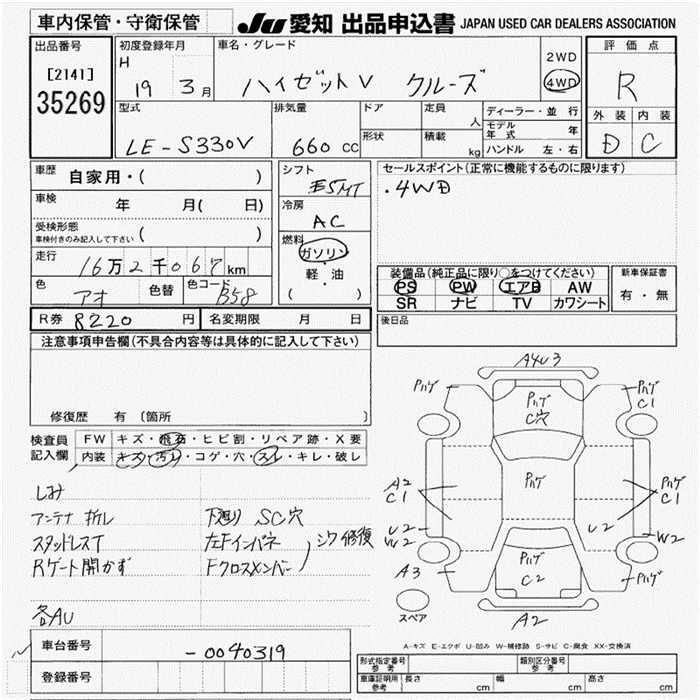 車内保管・守衛保管
JU 愛知 出品申込書 JAPAN USED CAR DEALERS ASSOCIATION
出品番号
[2141]
35269
初度登録年月
H 19 3月
車名・グレード
ハイゼットV クルーズ
2WD
4WD
評価点
R
外装 内装
D C
型式
LE-S330V
排気量
660 cc
ドア
形状
定員
人
積載
kg
ディーラー・並行
モデル年式 年
ハンドル 左・右
車歴
自家用・( )
車検
年 月( 日)
受検形態
車検付きのみ記入して下さい ( )
走行
16万2千067km
色
アオ
色替
色コード
B58
シフト
F5MT
冷房
AC
燃料
ガソリン
軽・油
( )
セールスポイント(正常に機能するものに限ります)
.4WD
装備品(純正品に限り○をつけてください)
PS PW エアB AW
SR ナビ TV カワシート
新車保証書
有・無
後日品
R券 8220 円
名変期限 月 日
注意事項申告欄(不具合内容等は具体的に記入して下さい)
修復歴 有 〔箇所
検査員
記入欄
FW キズ・飛石・ヒビ割・リペア跡・X要
内装 キズ・汚れ・コゲ・穴・スレ・キレ・破レ
しみ
アンテナ折レ
スタッドレスT
Rゲート開かず
各AU
下廻り SC穴
左Fインパネ
Fクロスメンバー
シワ修復
車台番号
-0040319
登録番号
A4U3
Pハゲ
Pハゲ
C穴
Pハゲ
C1
A2
C1
Pハゲ
Pハゲ
C1
U2
W2
U2
W2
A3
Pハゲ
C2
Pハゲ
スペア
A2
A-キズ E-エクボ U-凹み W-補修跡 S-サビ C-腐食 XX-交換済
形式指定番号
参考
類別区分番号
参考
車庫証明用
参考
長さ cm
幅 cm
高さ cm